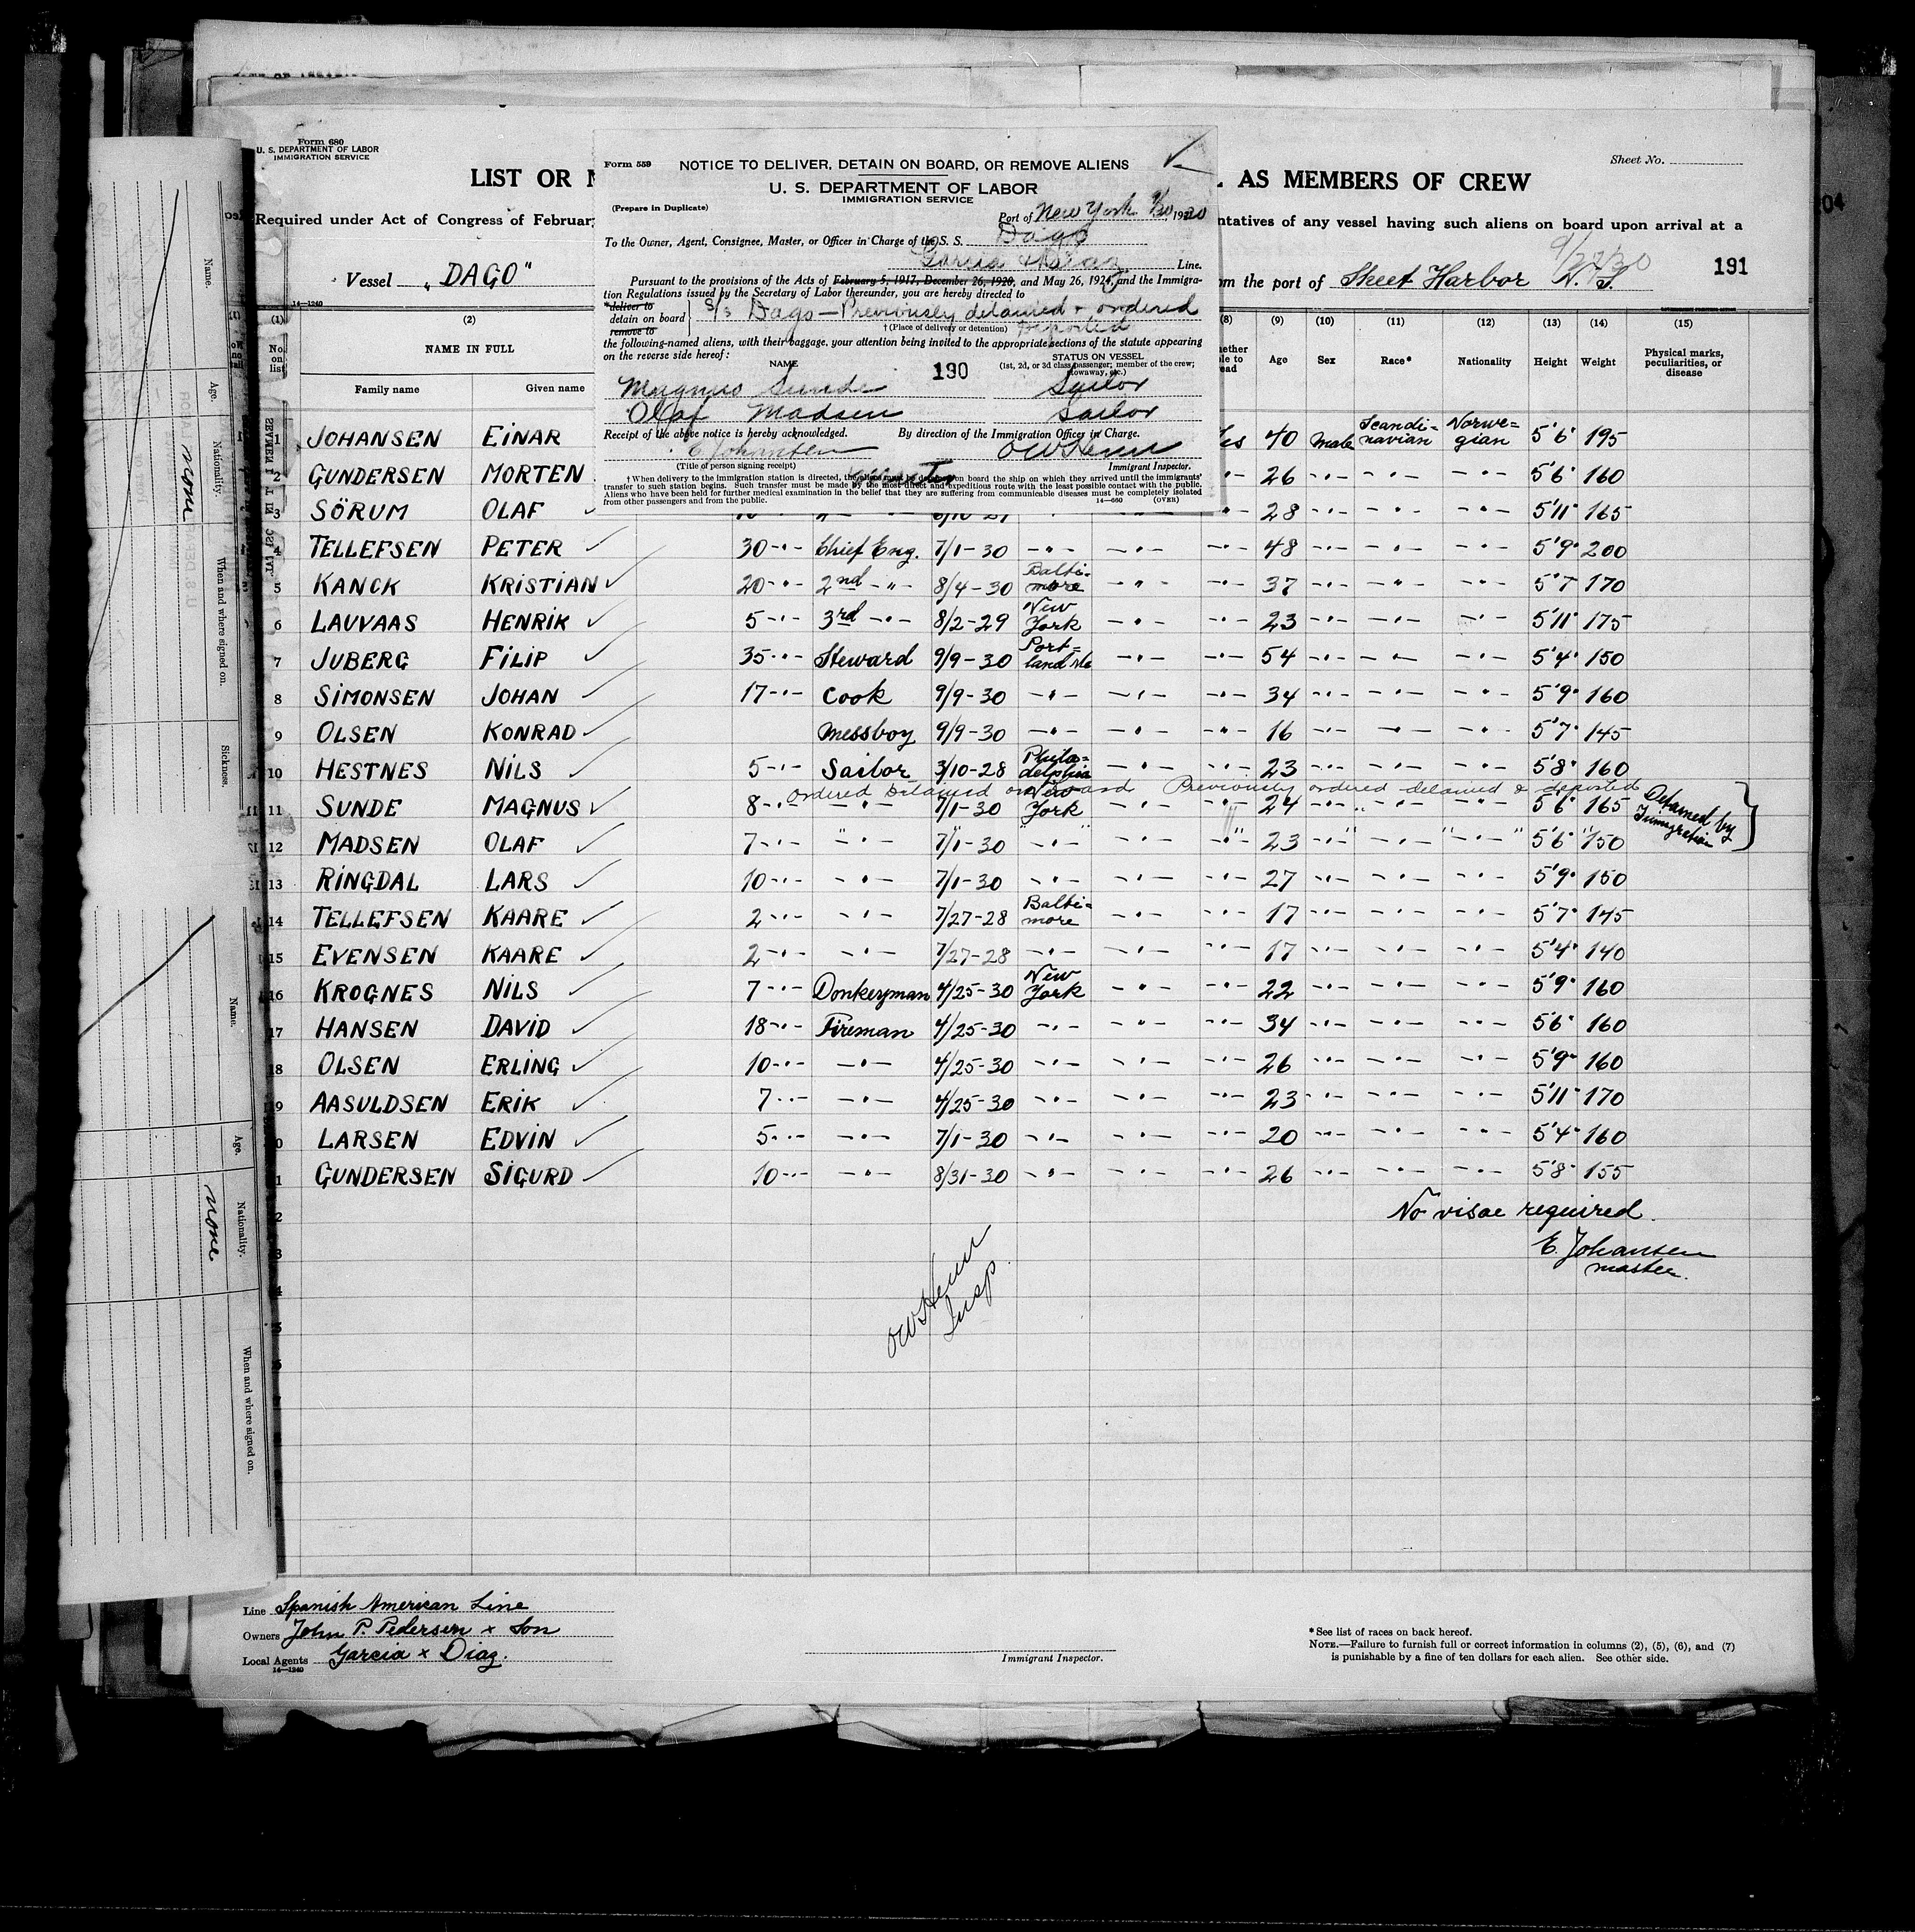 Form 680
U. S. DEPARTMENT OF LABOR
IMMIGRATION SERVICE
Sheet No.
LIST OR
AS MEMBERS OF CREW
Required under Act of Congress of February
ntatives of any vessel having such aliens on board upon arrival at a
Vessel „DAGO"
om the port of Sheet Harbor N. S.
9/28/30
191
14—1240
Form 559
NOTICE TO DELIVER, DETAIN ON BOARD, OR REMOVE ALIENS
U. S. DEPARTMENT OF LABOR
IMMIGRATION SERVICE
(Prepare in Duplicate)
Port of New York
To the Owner, Agent, Consignee, Master, or Officer in Charge of the S. S. Dago
Garcia & Diaz Line.
Pursuant to the provisions of the Acts of February 5, 1917, December 26, 1920, and May 26, 1924, and the Immigra-
tion Regulations issued by the Secretary of Labor thereunder, you are hereby directed to
*deliver to
detain on board
remove to
S/S Dago — Previously detained + ordered
deported
† (Place of delivery or detention)
the following-named aliens, with their baggage, your attention being invited to the appropriate sections of the statute appearing
on the reverse side hereof:
NAME
190
STATUS ON VESSEL
(1st, 2d, or 3d class passenger; member of the crew;
stowaway, etc.)
Magnus Sunde Sailor
Olaf Madsen Sailor
Receipt of the above notice is hereby acknowledged. By direction of the Immigration Officer in Charge.
E Johansen
(Title of person signing receipt)
Immigrant Inspector.
† When delivery to the immigration station is directed, the aliens must be detained on board the ship on which they arrived until the immigrants'
transfer to such station begins. Such transfer must be made by the most direct and expeditious route with the least possible contact with the public.
Aliens who have been held for further medical examination in the belief that they are suffering from communicable diseases must be completely isolated
from other passengers and from the public.
14—660
(OVER)
(1) (2) (8) (9) (10) (11) (12) (13) (14) (15)
No. on list
NAME IN FULL
Family name Given name
Age Sex Race* Nationality Height Weight Physical marks, peculiarities, or disease
1 JOHANSEN EINAR 40 male Scandi-navian Norwe-gian 5'6" 195
2 GUNDERSEN MORTEN 26 5'6" 160
3 SÖRUM OLAF 28 5'11" 165
4 TELLEFSEN PETER 30 -"- Chief Eng. 7/1-30 -"- -"- -"- 48 -"- -"- -"- 5'9" 200
5 KANCK KRISTIAN 20 -"- 2nd -"- 8/4-30 Balti-more -"- -"- 37 -"- -"- -"- 5'7 170
6 LAUVAAS HENRIK 5 -"- 3rd -"- 8/2-29 New York -"- -"- 23 -"- -"- -"- 5'11" 175
7 JUBERG FILIP 35 -"- Steward 9/9-30 Port-land Me -"- -"- 54 -"- -"- -"- 5'4" 150
8 SIMONSEN JOHAN 17 -"- Cook 9/9-30 -"- -"- -"- 34 -"- -"- -"- 5'9" 160
9 OLSEN KONRAD Messboy 9/9-30 -"- -"- -"- 16 -"- -"- -"- 5'7" 145
10 HESTNES NILS 5 -"- Sailor 3/10-28 Phila-delphia -"- -"- 23 -"- -"- -"- 5'8" 160
Ordered Detained on Board Previously ordered detained & deported
11 SUNDE MAGNUS 8 -"- -"- 7/1-30 New York -"- -"- 24 -"- -"- -"- 5'6" 165 Detained by Immigration
12 MADSEN OLAF 7 -"- -"- 7/1-30 -"- -"- -"- 23 -"- -"- -"- 5'6" 150
13 RINGDAL LARS 10 -"- -"- 7/1-30 -"- -"- -"- 27 -"- -"- -"- 5'9" 150
14 TELLEFSEN KAARE 2 -"- -"- 7/27-28 Balti-more -"- -"- 17 -"- -"- -"- 5'7" 145
15 EVENSEN KAARE 2 -"- -"- 7/27-28 -"- -"- -"- 17 -"- -"- -"- 5'4" 140
16 KROGNES NILS 7 -"- Donkeyman 4/25-30 New York -"- -"- 22 -"- -"- -"- 5'9" 160
17 HANSEN DAVID 18 -"- Fireman 4/25-30 -"- -"- -"- 34 -"- -"- -"- 5'6" 160
18 OLSEN ERLING 10 -"- -"- 4/25-30 -"- -"- -"- 26 -"- -"- -"- 5'9" 160
19 AASULDSEN ERIK 7 -"- -"- 4/25-30 -"- -"- -"- 23 -"- -"- -"- 5'11" 170
0 LARSEN EDVIN 5 -"- -"- 7/1-30 -"- -"- -"- 20 -"- -"- -"- 5'4" 160
1 GUNDERSEN SIGURD 10 -"- -"- 8/31-30 -"- -"- -"- 26 -"- -"- -"- 5'8" 155
No visae required.
E. Johansen
master.
Insp.
Line Spanish American Line
Owners John P. Pedersen & Son
Local Agents Garcia & Diaz.
14—1240
Immigrant Inspector.
* See list of races on back hereof.
NOTE.—Failure to furnish full or correct information in columns (2), (5), (6), and (7)
is punishable by a fine of ten dollars for each alien. See other side.
Name.
Age.
Nationality.
none
When and where signed on.
Sickness.
Name.
Age.
Nationality.
none
When and where signed on.
04